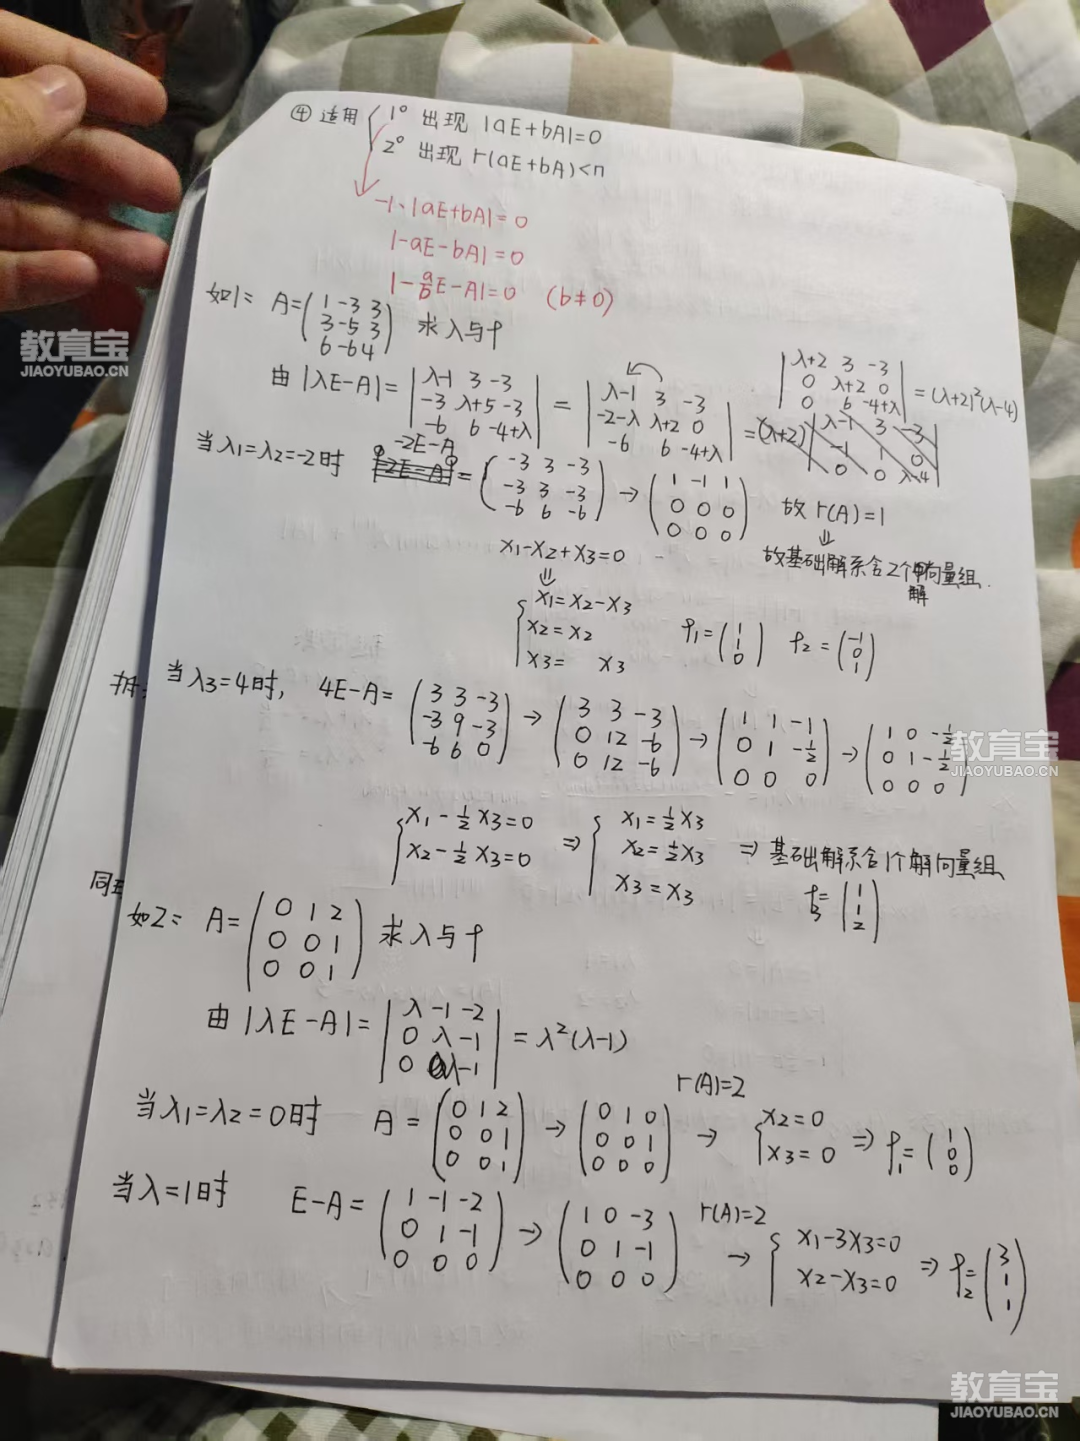 ④ 适用 { 1° 出现 |aE+bA|=0
2° 出现 r(aE+bA)<n
-1·|aE+bA|=0
|-aE-bA|=0
|-a/b E-A|=0 (b≠0)
如1: A=(1 -3 3; 3 -5 3; 6 -6 4) 求λ与ρ
由 |λE-A|= |λ-1 3 -3; -3 λ+5 -3; -6 6 -4+λ| = |λ-1 3 -3; -2-λ λ+2 0; -6 6 -4+λ| = (λ+2) |λ-1 3 -3; -1 1 0; 0 0 λ-4|
|λ+2 3 -3; 0 λ+2 0; 0 6 -4+λ| = (λ+2)²(λ-4)
当λ1=λ2=-2时 -2E-A = (-3 3 -3; -3 3 -3; -6 6 -6) → (1 -1 1; 0 0 0; 0 0 0) 故 r(A)=1
⇓
x1-x2+x3=0 故基础解系含2个解向量组.
⇓
{ x1=x2-x3
x2=x2
x3= x3
ρ1=(1; 1; 0) ρ2=(-1; 0; 1)
当λ3=4时, 4E-A= (3 3 -3; -3 9 -3; -6 6 0) → (3 3 -3; 0 12 -6; 0 12 -6) → (1 1 -1; 0 1 -1/2; 0 0 0) → (1 0 -1/2; 0 1 -1/2; 0 0 0)
{ x1-1/2 x3=0
x2-1/2 x3=0
⇒ { x1=1/2 x3
x2=1/2 x3
x3=x3
⇒ 基础解系含1个解向量组
ρ3=(1; 1; 2)
同理
如2: A=(0 1 2; 0 0 1; 0 0 1) 求λ与ρ
由 |λE-A|= |λ -1 -2; 0 λ -1; 0 0 λ-1| = λ²(λ-1)
当λ1=λ2=0时 A=(0 1 2; 0 0 1; 0 0 1) → (0 1 0; 0 0 1; 0 0 0) r(A)=2 → { x2=0 x3=0 ⇒ ρ1=(1; 0; 0)
当λ=1时 E-A=(1 -1 -2; 0 1 -1; 0 0 0) → (1 0 -3; 0 1 -1; 0 0 0) r(A)=2 → { x1-3x3=0 x2-x3=0 ⇒ ρ2=(3; 1; 1)
教育宝
JIAOYUBAO.CN
教育宝
JIAOYUBAO.CN
教育宝
JIAOYUBAO.CN